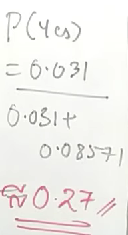 P(Yes)
= 0.031
0.031+
0.08571
≈ 0.27 //